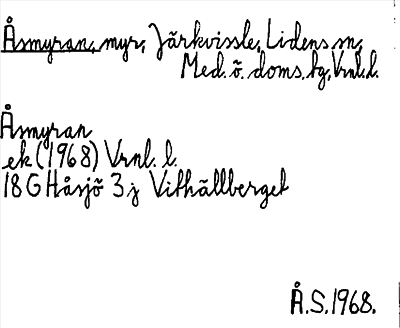 Åsmyran, myr, Järkvissle, Lidens sn,
Med. ö. doms. hg, Vrnl. l.
Åsmyran
ek (1968) Vrnl. l.
18 G Håsjö 3 j Vithällberget
Å.S. 1968.